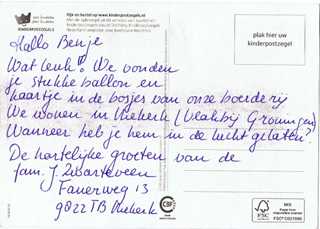 KINDERPOSTZEGELS
Kijk en bestel op www.kinderpostzegels.nl
plak hier uw
kinderpostzegel
Hallo Benje
Wat leuk! We vonden
je stukke ballon en
kaartje in de bosjes van onze boerderij
We wonen in Niekerk (Vlakbij Groningen)
Wanneer heb je hem in de lucht gelaten?
De hartelijke groeten van de
fam. J. Zwarteveen
Fanerweg 13
9822 TB Niekerk
CBF
FSC
MIX